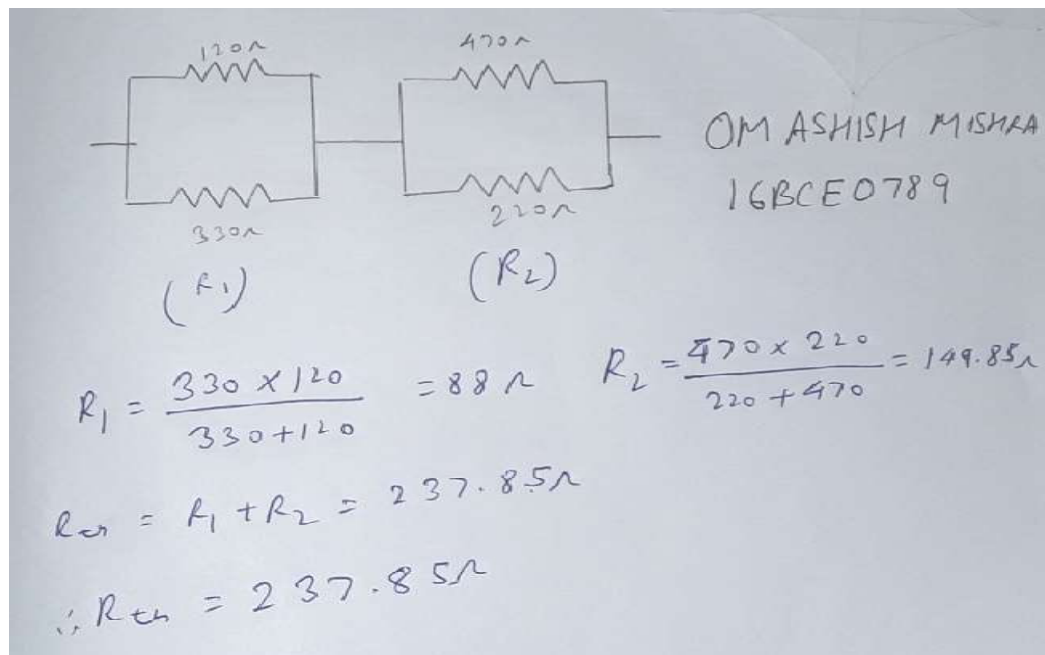 120Ω 470Ω
OM ASHISH MISHRA
16BCE0789
330Ω 220Ω
(R1) (R2)
R1 = 330 x 120 / 330+120 = 88Ω
R2 = 470 x 220 / 220+470 = 149.85Ω
Rth = R1 + R2 = 237.85Ω
∴ Rth = 237.85Ω